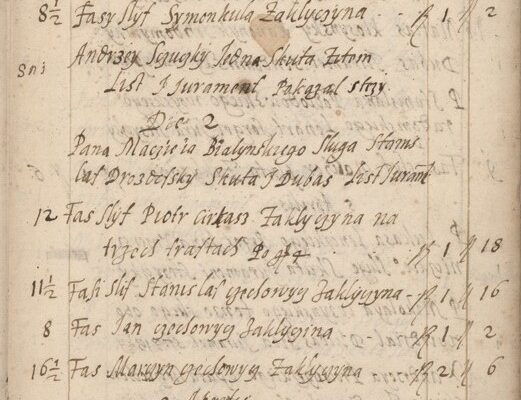 8½ Fasy Slyf Symonkula Zaklyczyna f 1 2
Andrzey Szugky Jedna Skuta Zytom
List J Jurament Pokazal strzy
Die 2
Pana Macieia Bialynskiego Sluga Stanis
las Drozdesky Skuta J Dubas List Jurant
12 Fas Slyf Piotr cirkasz Zaklyczyna na
trzech traftach Po gr 4 f 1 18
11½ Fasi Slif Stanislas czeslowyg Zaklyczyna f 1 16
8 Fas Jan czeslowyg Zaklyczina f 1 2
16½ Fas Marcyn czeslowyg Zaklyczyna f 2 6